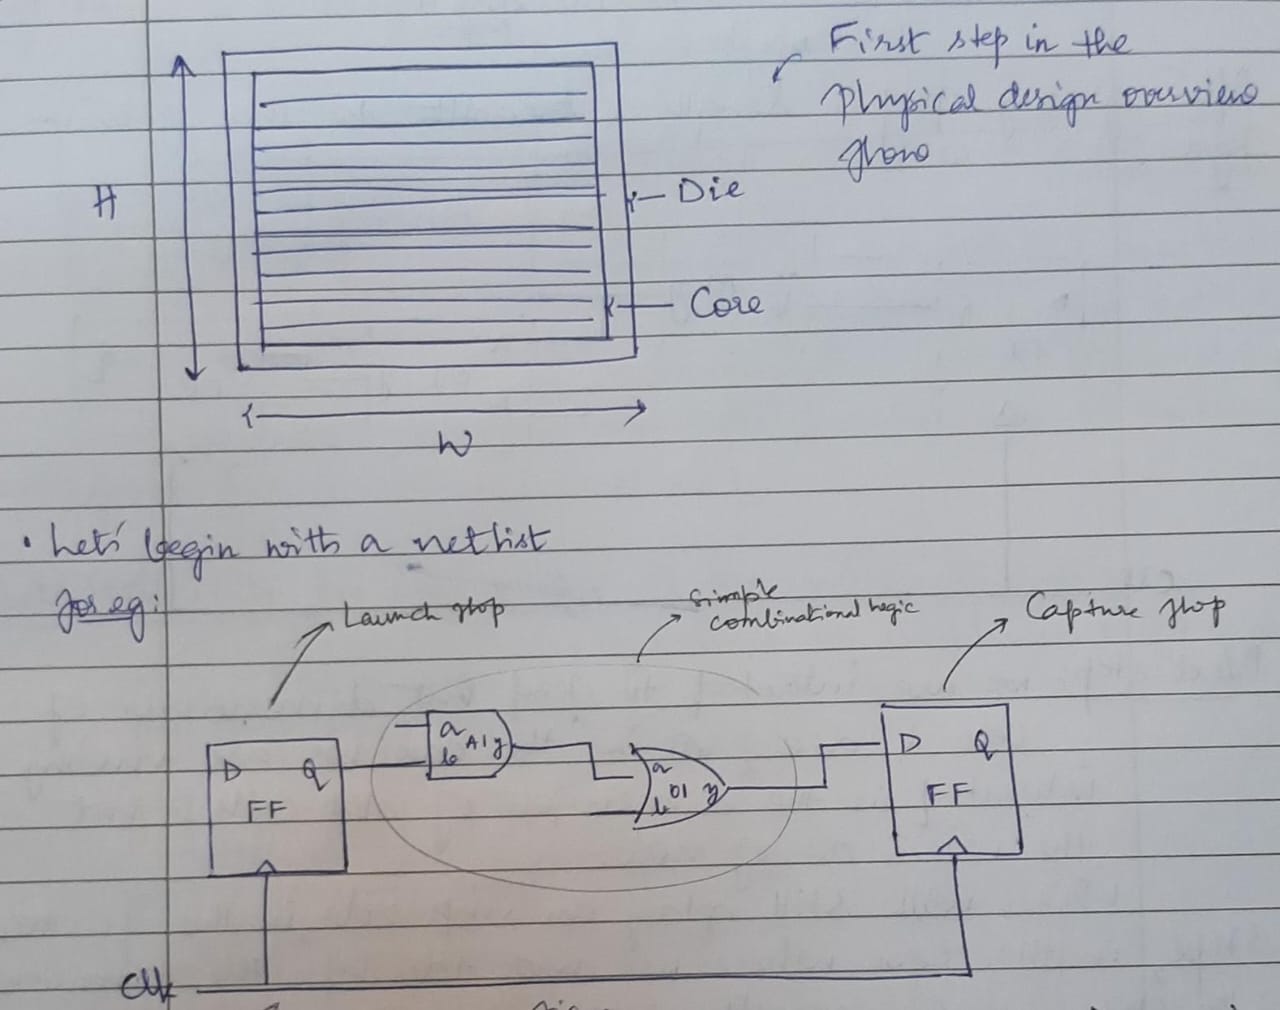 First step in the
physical design overview
flow
H
Die
Core
W
• Let's begin with a netlist
for eg:
Launch flop
Simple
combinational logic
Capture flop
a
b A1 y
D Q
FF
a
b O1 y
D Q
FF
Clk